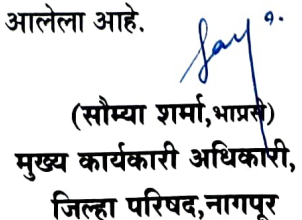 आलेला आहे.
(सौम्या शर्मा,भाप्रसे)
मुख्य कार्यकारी अधिकारी,
जिल्हा परिषद,नागपूर